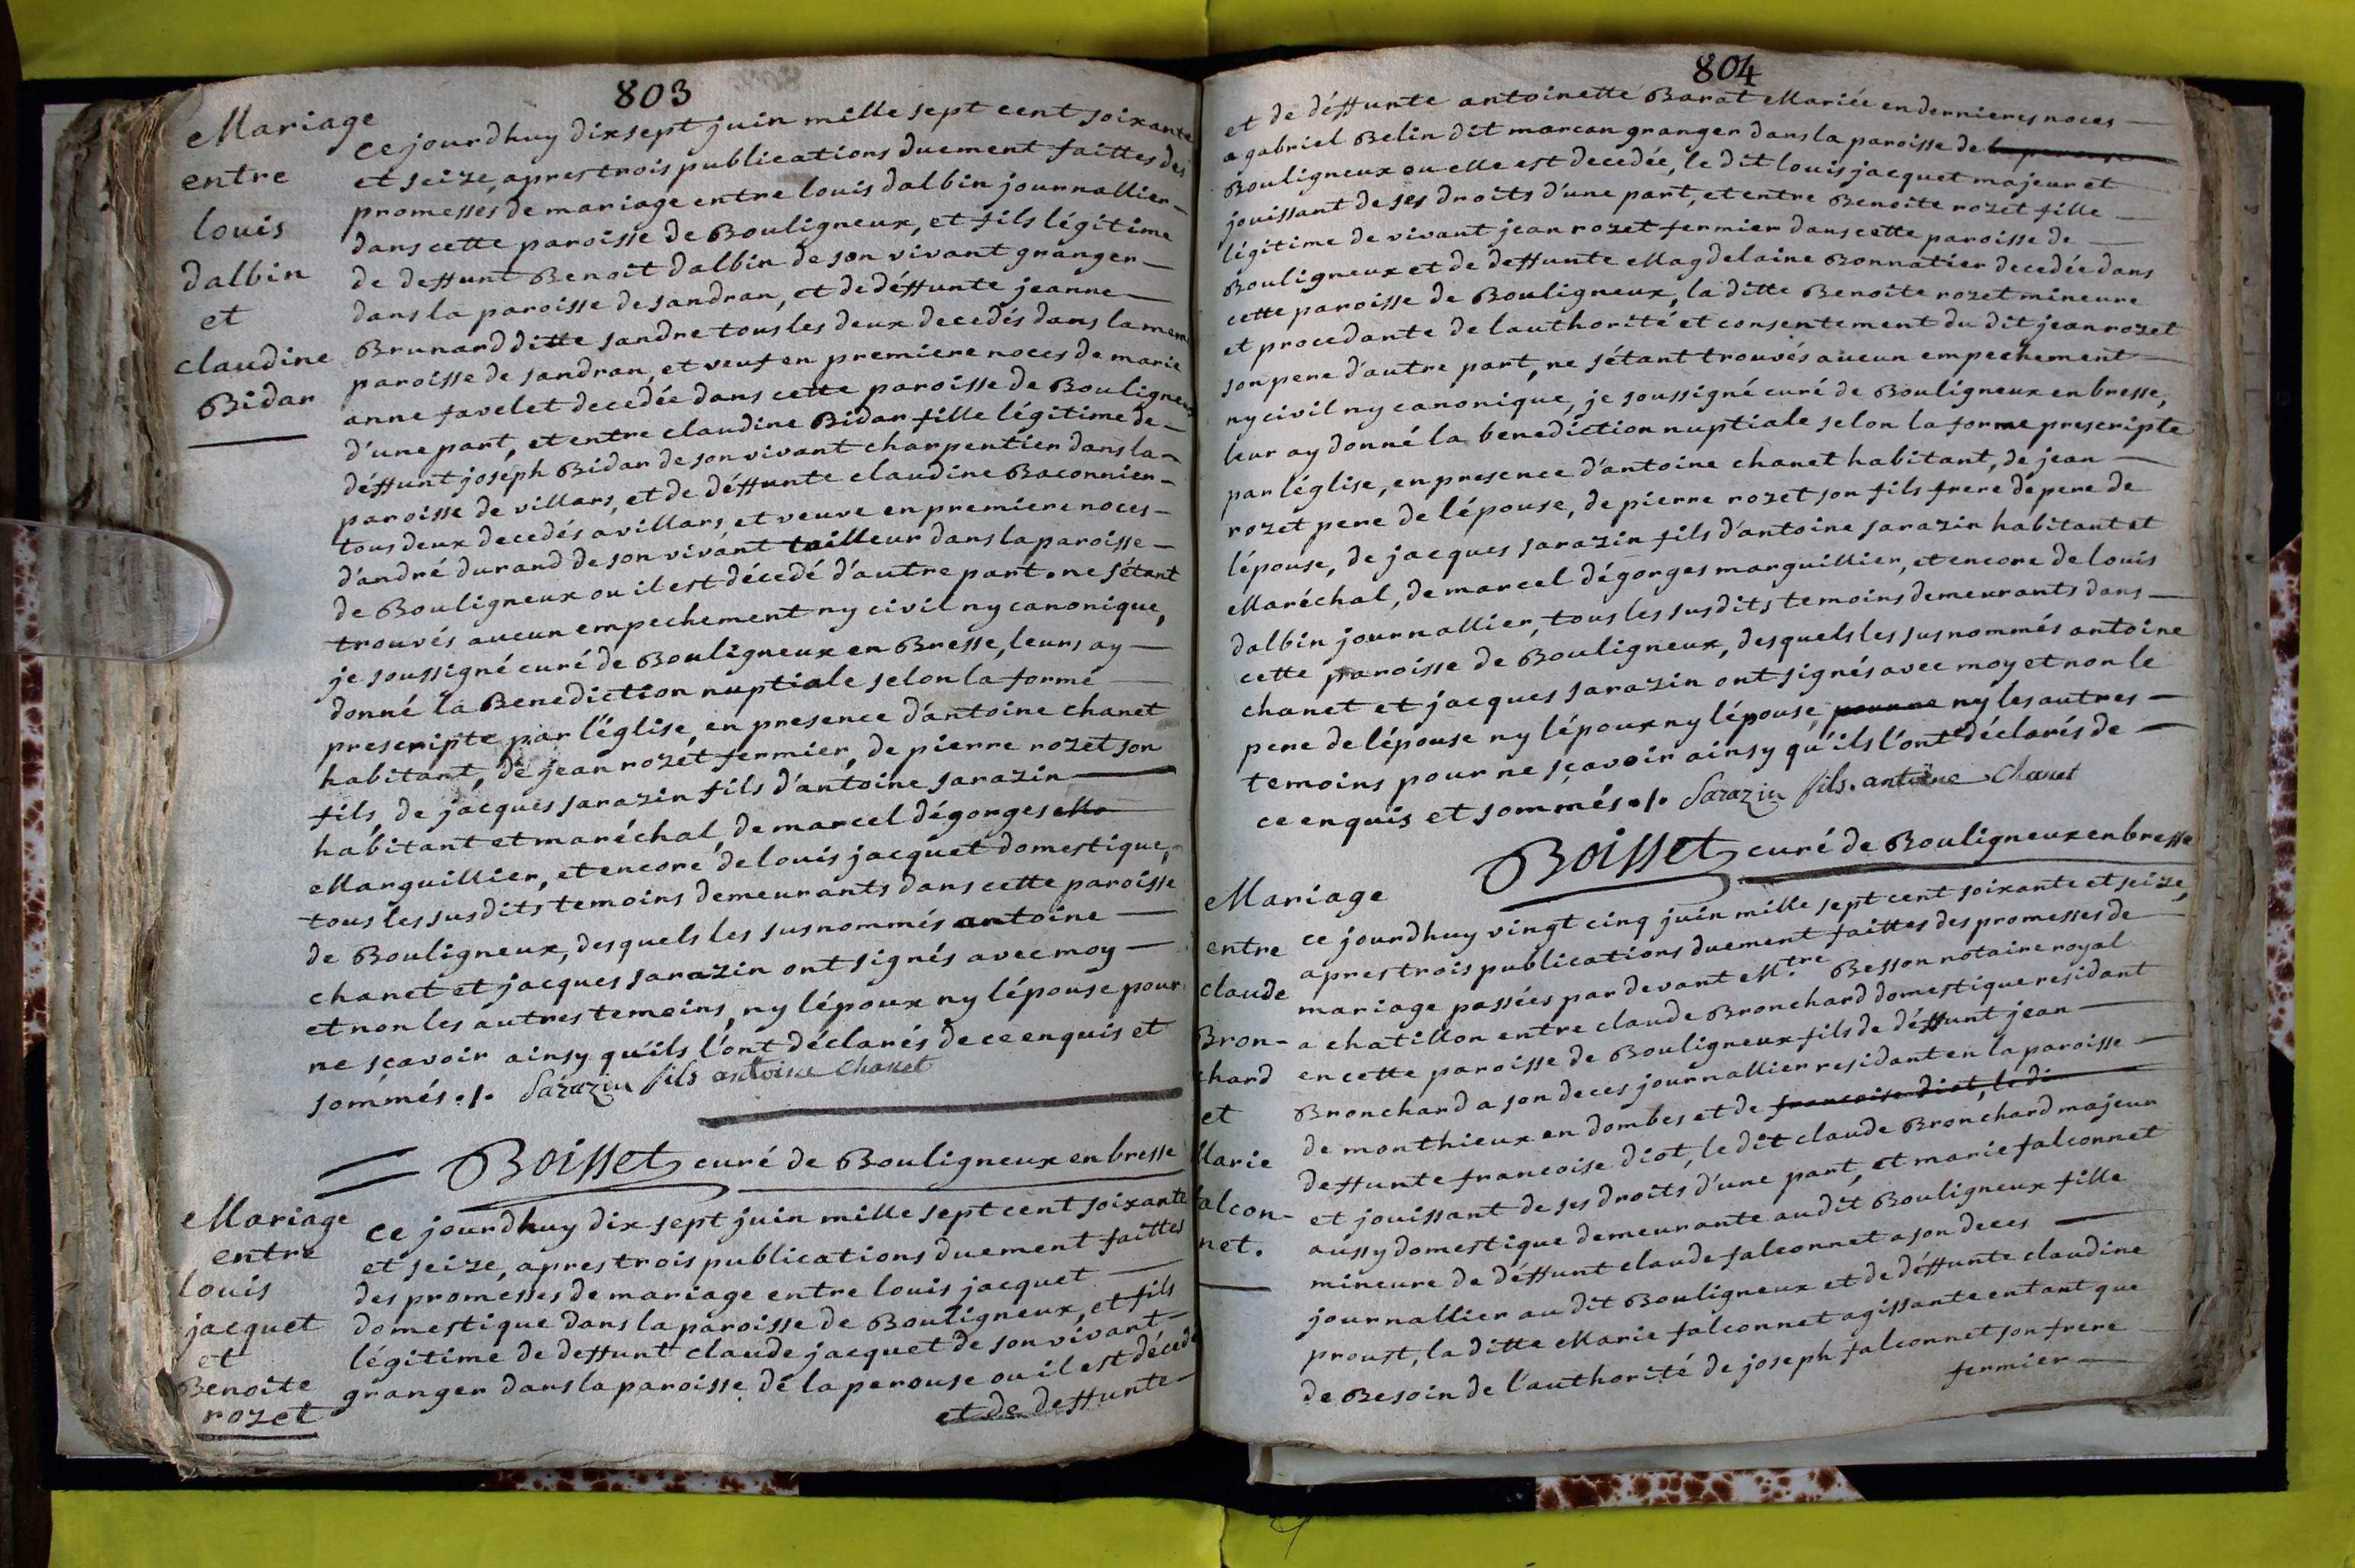 803
Mariage
entre
louis
dalbin
et
claudine
Bidar
ce jourdhuy dix sept juin mille sept cent soixante
et seize, apres trois publications duement faittes des
promesses de mariage entre louis dalbin journallier
dans cette paroisse de Bouligneux, et fils légitime
de deffunt Benoit dalbin de son vivant granger
dans la paroisse de sandran, et de déffunte jeanne
Brunard ditte sandre tous les deux decedés dans la mem
paroisse de sandran, et veuf en premiere noces de marie
anne favelet decedée dans cette paroisse de Bouligneux
d'une part, et entre claudine Bidar fille légitime de
déffunt joseph Bidar de son vivant charpentier dans la
paroisse de villars, et de déffunte claudine Baconnier
tous deux decedés a villars, et veuve en premiere noces
d'andré durand de son vivant tailleur dans la paroisse
de Bouligneux ou il est décedé d'autre part. ne s'étant
trouvés aucun empechement ny civil ny canonique,
je soussigné curé de Bouligneux en Bresse, leurs ay
donné la Benediction nuptiale selon la forme
prescripte par l'église, en presence d'antoine chanet
habitant, de jean rozet fermier, de pierre rozet son
fils, de jacques sarazin fils d'antoine sarazin
habitant et maréchal, de marcel dégorges Ma
Marguillier, et encore de louis jacquet domestique,
tous les susdits temoins demeurants dans cette paroisse
de Bouligneux, desquels les susnommés antoine
chanet et jacques sarazin ont signés avec moy
et non les autres temoins, ny l'époux ny l'épouse pour
ne sçavoir ainsy qu'ils l'ont déclarés de ce enquis et
sommés ./. Sarazin fils antoine Chanet
Boisset curé de Bouligneux en bresse
Mariage
entre
louis
jacquet
et
Benoite
rozet
ce jourdhuy dix sept juin mille sept cent soixante
et seize, apres trois publications duement faittes
des promesses de mariage entre louis jacquet
domestique dans la paroisse de Bouligneux, et fils
légitime de deffunt claude jacquet de son vivant
granger dans la paroisse de la perouse ou il est décedé
et de deffunte
804
et de déffunte antoinette Barat Mariée en dernieres noces
a gabriel Belin dit marcan granger dans la paroisse de la perouse
Bouligneux ou elle est decedée, le dit louis jacquet majeur et
jouissant de ses droits d'une part, et entre Benoite rozet fille
légitime de vivant jean rozet fermier dans cette paroisse de
Bouligneux et de deffunte Magdelaine Bonnatier decedée dans
cette paroisse de Bouligneux, la ditte Benoite rozet mineure
et procedante de l'authorité et consentement du dit jean rozet
son pere d'autre part, ne s'étant trouvés aucun empechement
ny civil ny canonique, je soussigné curé de Bouligneux en bresse,
leur ay donné la benediction nuptiale selon la forme prescripte
par l'église, en presence d'antoine chanet habitant, de jean
rozet pere de l'épouse, de pierre rozet son fils frere de pere de
l'épouse, de jacques sarazin fils d'antoine sarazin habitant et
Maréchal, de marcel dégorges marguillier, et encore de louis
dalbin journallier, tous les susdits temoins demeurants dans
cette paroisse de Bouligneux, desquels les susnommés antoine
chanet et jacques sarazin ont signés avec moy et non le
pere de l'épouse ny l'époux ny l'épouse, pour ne ny les autres
temoins pour ne sçavoir ainsy qu'ils l'ont déclarés de
ce enquis et sommés ./. Sarazin fils. antoine Chanet
Boisset curé de Bouligneux en bresse
Mariage
entre
claude
Bron-
chard
et
Marie
falcon-
net.
ce jourdhuy vingt cinq juin mille sept cent soixante et seize,
apres trois publications duement faittes des promesses de
mariage passées par devant Mtre Besson notaire royal
a chatillon entre claude Bronchard domestique residant
en cette paroisse de Bouligneux fils de déffunt jean
Bronchard a son deces journallier residant en la paroisse
de monthieux en dombes et de francoise diot, le di
deffunte francoise diot, le dit claude Bronchard majeur
et jouissant de ses droits d'une part, et marie falconnet
aussy domestique demeurante audit Bouligneux fille
mineure de déffunt claude falconnet a son deces
journallier au dit Bouligneux et de déffunte claudine
proust, la ditte Marie falconnet agissante entant que
de Besoin de l'authorité de joseph falconnet son frere
fermier